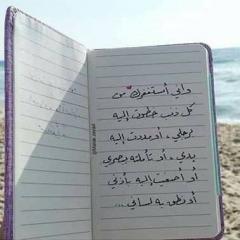 وإني أستغفرك من
كل ذنب خطوت إليه
برجلي ، أو مددت إليه
يدي ، أو تأملته ببصري
أو أصغيت إليه بأذني
أو نطق به لساني ...